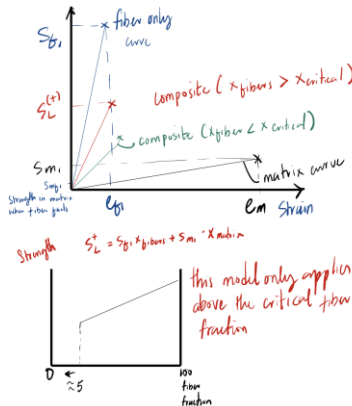 Sf1
fiber only
curve
SL(+)
composite (xfibers > xcritical)
composite (xfiber < xcritical)
Sm1
Smf1
Strength in matrix
when fiber fails
ef1
em
Strain
matrix curve
Strength
SL+ = Sf1 xfibers + Sm1 · xmatrix
this model only applies
above the critical fiber
fraction
0
≈5
100
fiber
fraction